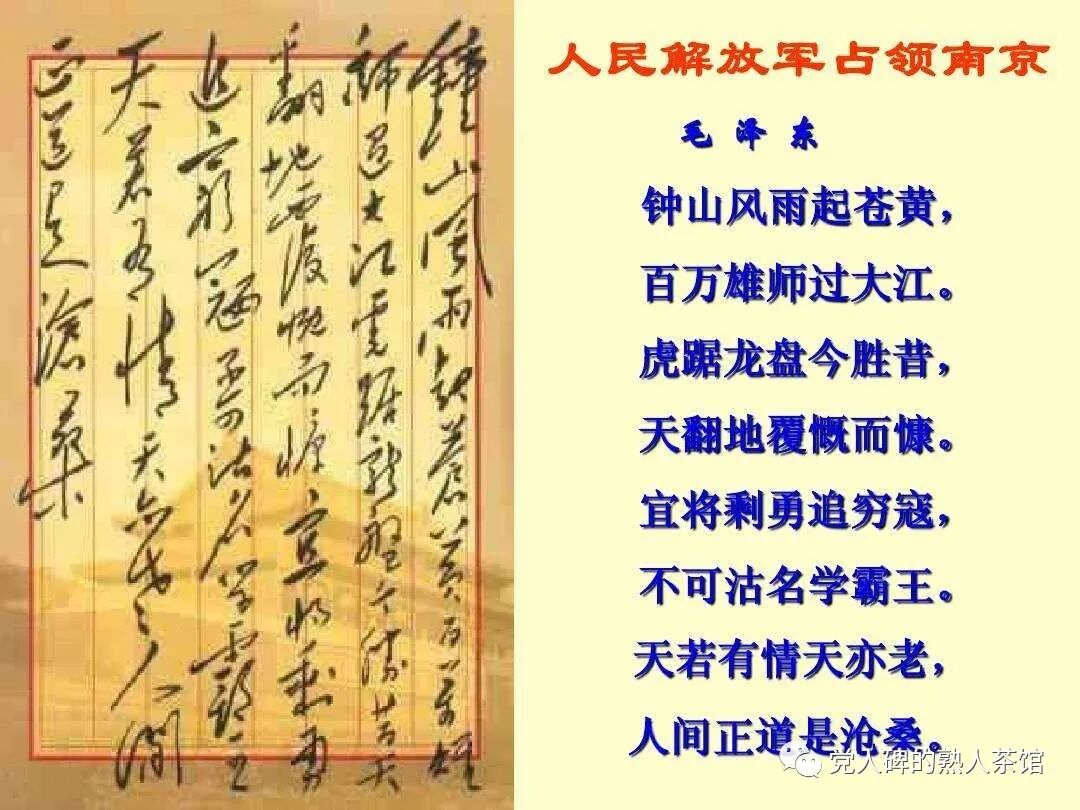 鐘山風雨起蒼黃百萬雄
師過大江虎踞龍盤今勝昔天
翻地覆慨而慷宜將剩勇
追窮寇不可沽名學霸王
天若有情天亦老人間
正道是滄桑
人民解放军占领南京
毛泽东
钟山风雨起苍黄，
百万雄师过大江。
虎踞龙盘今胜昔，
天翻地覆慨而慷。
宜将剩勇追穷寇，
不可沽名学霸王。
天若有情天亦老，
人间正道是沧桑。
党人碑的熟人茶馆